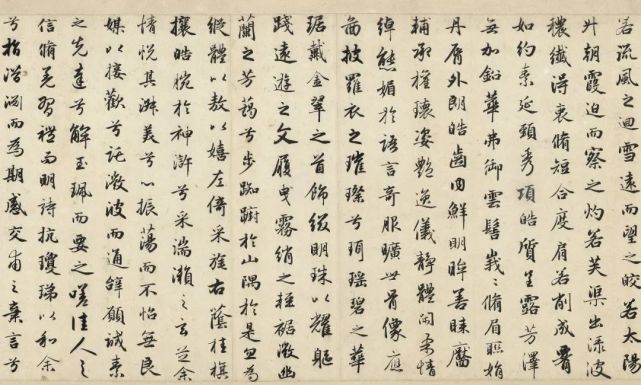 若流風之迴雪遠而望之皎若太陽
升朝霞迫而察之灼若芙渠出渌波
穠纖得衷脩短合度肩若削成𦝫
如約素延頸秀項皓質呈露芳澤
無加鉛華弗御雲髻峩〻脩眉聯娟
丹脣外朗皓齒內鮮明眸善睞靨
輔承權瓌姿艷逸儀靜體閑柔情
綽態媚於語言奇服曠世骨像應
圖披羅衣之璀璨兮珥瑶碧之華
琚戴金翠之首飾綴明珠以耀軀
踐遠遊之文履曳霧綃之輕裾微幽
蘭之芳藹兮步踟躕於山隅於是忽焉
縱體以敖以嬉左倚采旄右蔭桂旗
攘皓腕於神滸兮采湍瀨之玄芝余
情悅其淑美兮心振蕩而不怡無良
媒以接歡兮託微波而通辭願誠素
之先達兮解玉珮而要之嗟佳人之
信脩羌習禮而明詩抗瓊珶以和余
兮指潛淵而為期感交甫之棄言兮